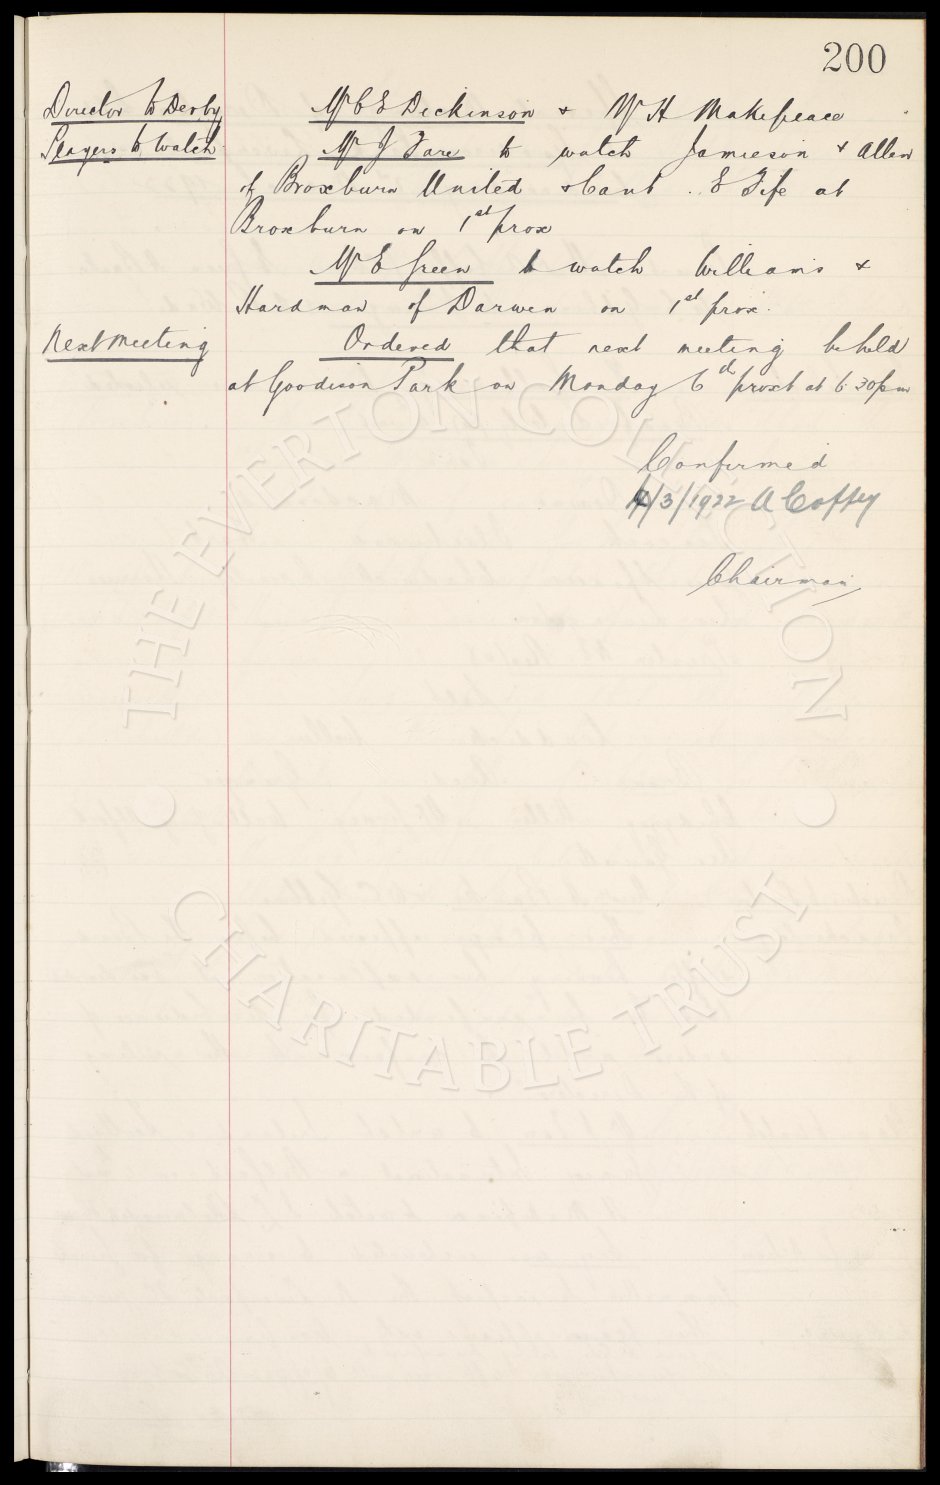 200
Director to Derby Mr C E Dickinson & Mr H Makepeace
Players to Watch Mr J Fare to watch Jamieson & Allen
of Broxburn United & Cant . E Fife at
Broxburn on 1st prox
Mr E Green to watch Williams &
Hardman of Darwen on 1st prox.
Next meeting Ordered that next meeting be held
at Goodison Park on Monday 6th proxt at 6.30pm
Confirmed
/3/1922 A Coffey
Chairman
THE EVERTON COLLECTION
CHARITABLE TRUST